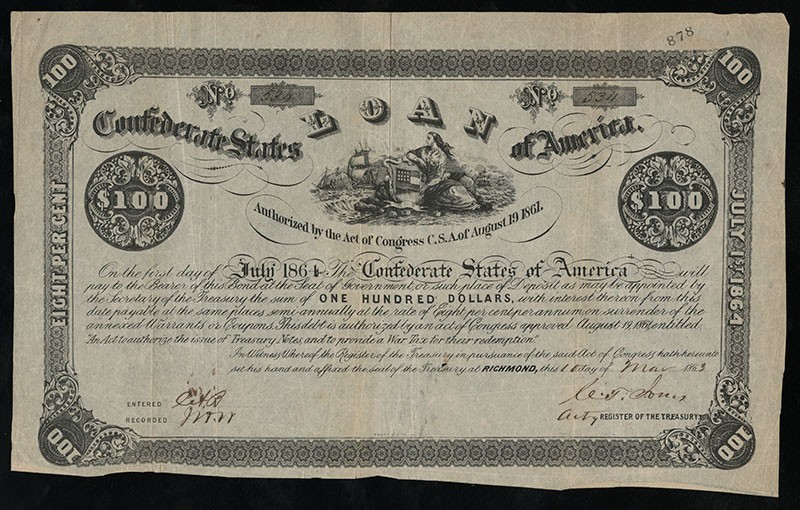 878
100
100
No
No 534
Confederate States LOAN of America.
$100
$100
Authorized by the Act of Congress C.S.A. of August 19 1861.
EIGHT PER CENT
JULY 1st 1864
On the first day of July 1864 The Confederate States of America will
pay to the Bearer of this Bond at the Seat of Government or such place of Deposit as may be appointed by
the Secretary of the Treasury the sum of ONE HUNDRED DOLLARS, with interest thereon from this
date payable at the same places semi-annually at the rate of Eight per cent per annum on surrender of the
annexed Warrants or Coupons. This debt is authorized by an act of Congress approved August 19, 1861 entitled
"An Act to authorize the issue of Treasury Notes and to provide a War Tax for their redemption"
In Witness Whereof the Register of the Treasury in pursuance of the said Act of Congress hath hereunto
set his hand and affixed the seal of the Treasury at RICHMOND, this day of Mar 1863
ENTERED
C. T. Jones
RECORDED
Actg REGISTER OF THE TREASURY
100
100